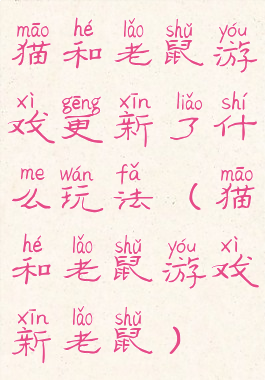 māo hé lǎo shǔ yóu
猫和老鼠游
xì gēng xīn liǎo shí
戏更新了什
me wán fǎ māo
么玩法(猫
hé lǎo shǔ yóu xì
和老鼠游戏
xīn lǎo shǔ
新老鼠)